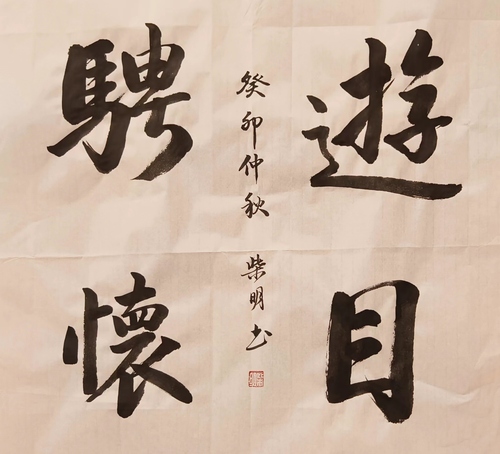 遊目
騁懷
癸卯仲秋 柴明书